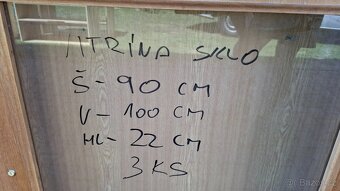 VITRINA SKLO
Š-90 CM
V-100 CM
HL-22 CM
3 KS